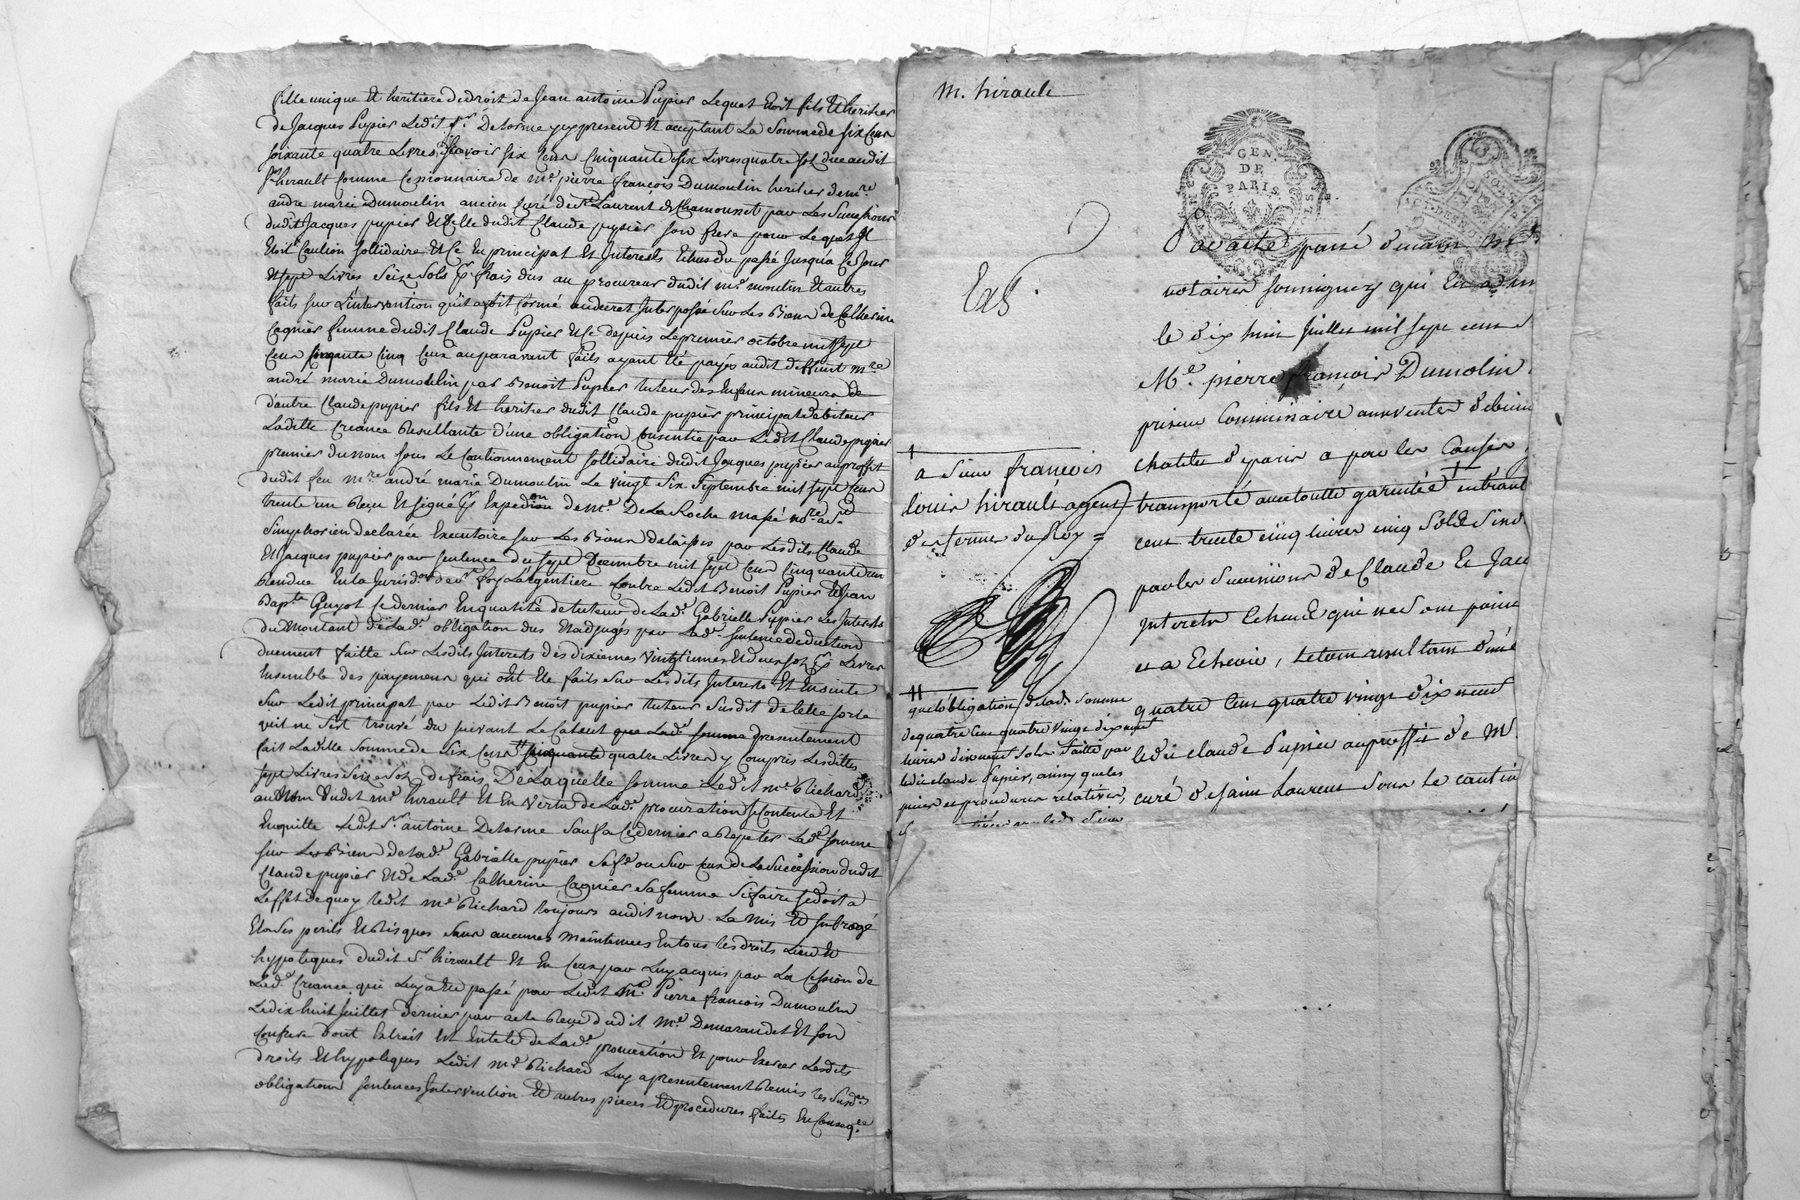 fille unique et heritiere de droit de Jean antoine Pupier Lequel Etoit fils et heritier
de Jacques Pupier Ledit Sr. Delorme yy present et acceptant La Somme de six Cent
soixante quatre Livres, scavoir six Cent Cinquante six Livres quatre sol due audit
Sr. hirault comme Cessionnaire de Me. pierre françois Dumoulin heritier de mre
andre marie Dumoulin ancien Curé de St. Laurent de Chamousset par Les Successions
dudit Jacques pupier et Celle dudit Claude pupier son frere pour Lequel Il
Etoit Caution sollidaire et Ce En principal Et Interests Echus du passé Jusqua Ce Jour
et sept Livres seize sols Pr. frais dus au procureur dudit Me. moulin et autres
faits sur L'intervention qu'il avoit formé au decret Interposé sur Les Biens de Catherine
Cagnier femme dudit Claude Pupier et Ce depuis Le premier octobre mil sept
Cent Cinquante Cinq Ceux auparavant faits ayant Eté payés audit deffunt mre
andré marie Dumoulin par Benoit Pupier tuteur des Enfans mineurs de
d'autre Claude pupier fils Et heritier dudit Claude pupier principal debiteur
Ladite Creance Resultante d'une obligation Consentie par Ledit Claude pupier
premier du nom sous Le Cautionnement sollidaire dudit Jacques pupier au proffit
dudit feu mre andré marie Dumoulin Le vingt six Septembre mil sept Cent
trente un Reçu Et signé Pr. Expedion de Me. DeLaRoche massé nore. a St.
Simphorien declarée Executoire sur Les Biens delaissés par Lesdits Claude
Et Jacques pupier par sentence du sept Decembre mil sept Cent Cinquante un
Rendue En la Jurisdon de Ste. foy L'argentiere Contre Ledit Benoit Pupier et Jean
Bapte Guyot Ce dernier En qualité de tuteur de Lade. Gabrielle Pupier Les Interests
du Montant de Lade. obligation dus Et adjugés par Lade. sentence deduction
duement faitte sur Lesdits Interests des dixiemes vingtiemes et deux sol Pr. Livres
Ensemble des payemens qui ont Eté faits sur Lesdits Interests Et Ensuite
sur Ledit principal par Ledit Benoit pupier tuteur susdit de Cette sorte
quil ne s'est trouvé du suivant Le Calcul que Lade. somme presentement
fait Ladite Somme de six Cent Cinquante quatre Livres y Compris Lesdittes
sept Livres seize sols de frais, De Laquelle somme Ledit Me. Richard
au Nom dudit Mr. hirault Et En vertu de Lade. procuration se Contente Et
En quitte Ledit Sr. antoine Delorme sauf a Ce dernier a Repeter Lade. somme
sur Les Biens de Lade. Gabrielle pupier sa fe. ou sur Ceux de La Succession dudit
Claude pupier Et de Lade. Catherine Cagnier sa femme si faire se doit a
L'effet de quoy Ledit Me. Richard toujours audit nom La mis Et subrogé
Et a Ses perils Et Risques sans aucunes maintenues En tous les droits Lieu Et
hypoteques dudit Sr. hirault Et En Ceux par Luy acquis par La Cession de
Lade. Creance qui Luy a Eté passé par Ledit Me. Pierre francois Dumoulin
Le dix huit Juillet dernier par acte Reçu dudit Me. Demarandel Et son
Confrere dont Extrait Est En tete de Lade. procuration Et pour Exercer Lesdits
droits Et hypoteques Ledit Me. Richard Luy a presentement Remis Les susdes
obligations sentences Intervention Et autres pieces Et procedures faits En Conseqce
M. hirault
GEN. DE PARIS
Ext.
Par acte passé devant Me
notaires soussignez qui En a m
le dix huit Juillet mil sept cent s
Me. pierre françois Dumolin
priseur Commissaire aux ventes de biens
chatelet de paris a par les Causes
transporté avec toutte garentie entrant
cent trente cinq livres cinq sols 
par les Successions de Claude Et Jac
Interets Echeus qui ne se sont point
et a Echeoir, Le tout resultant d'une
quatre Cent quatre vingt dix neuf
ledit claude Pupier au proffit de M.
curé de saint Laurent sous le cautio
a Sieur francois
louis hirault agent
des fermes du Roy =
que l'obligation de lad. somme
de quatre Cent quatre vingt dix neuf
livres dix neuf sols faitte par
ledit claude Pupier, ainsy que les
pieces et procedures relatives,